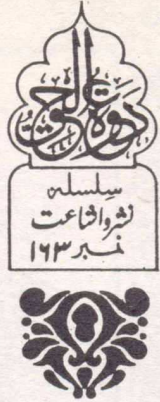 دعوۃ الحق
سلسلہ
نشر و اشاعت
نمبر ۱۶۳